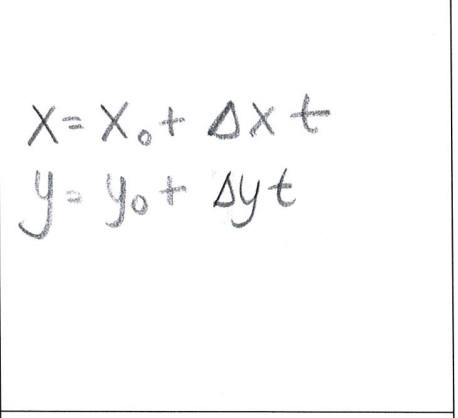 x = x₀ + Δx t
y = y₀ + Δy t